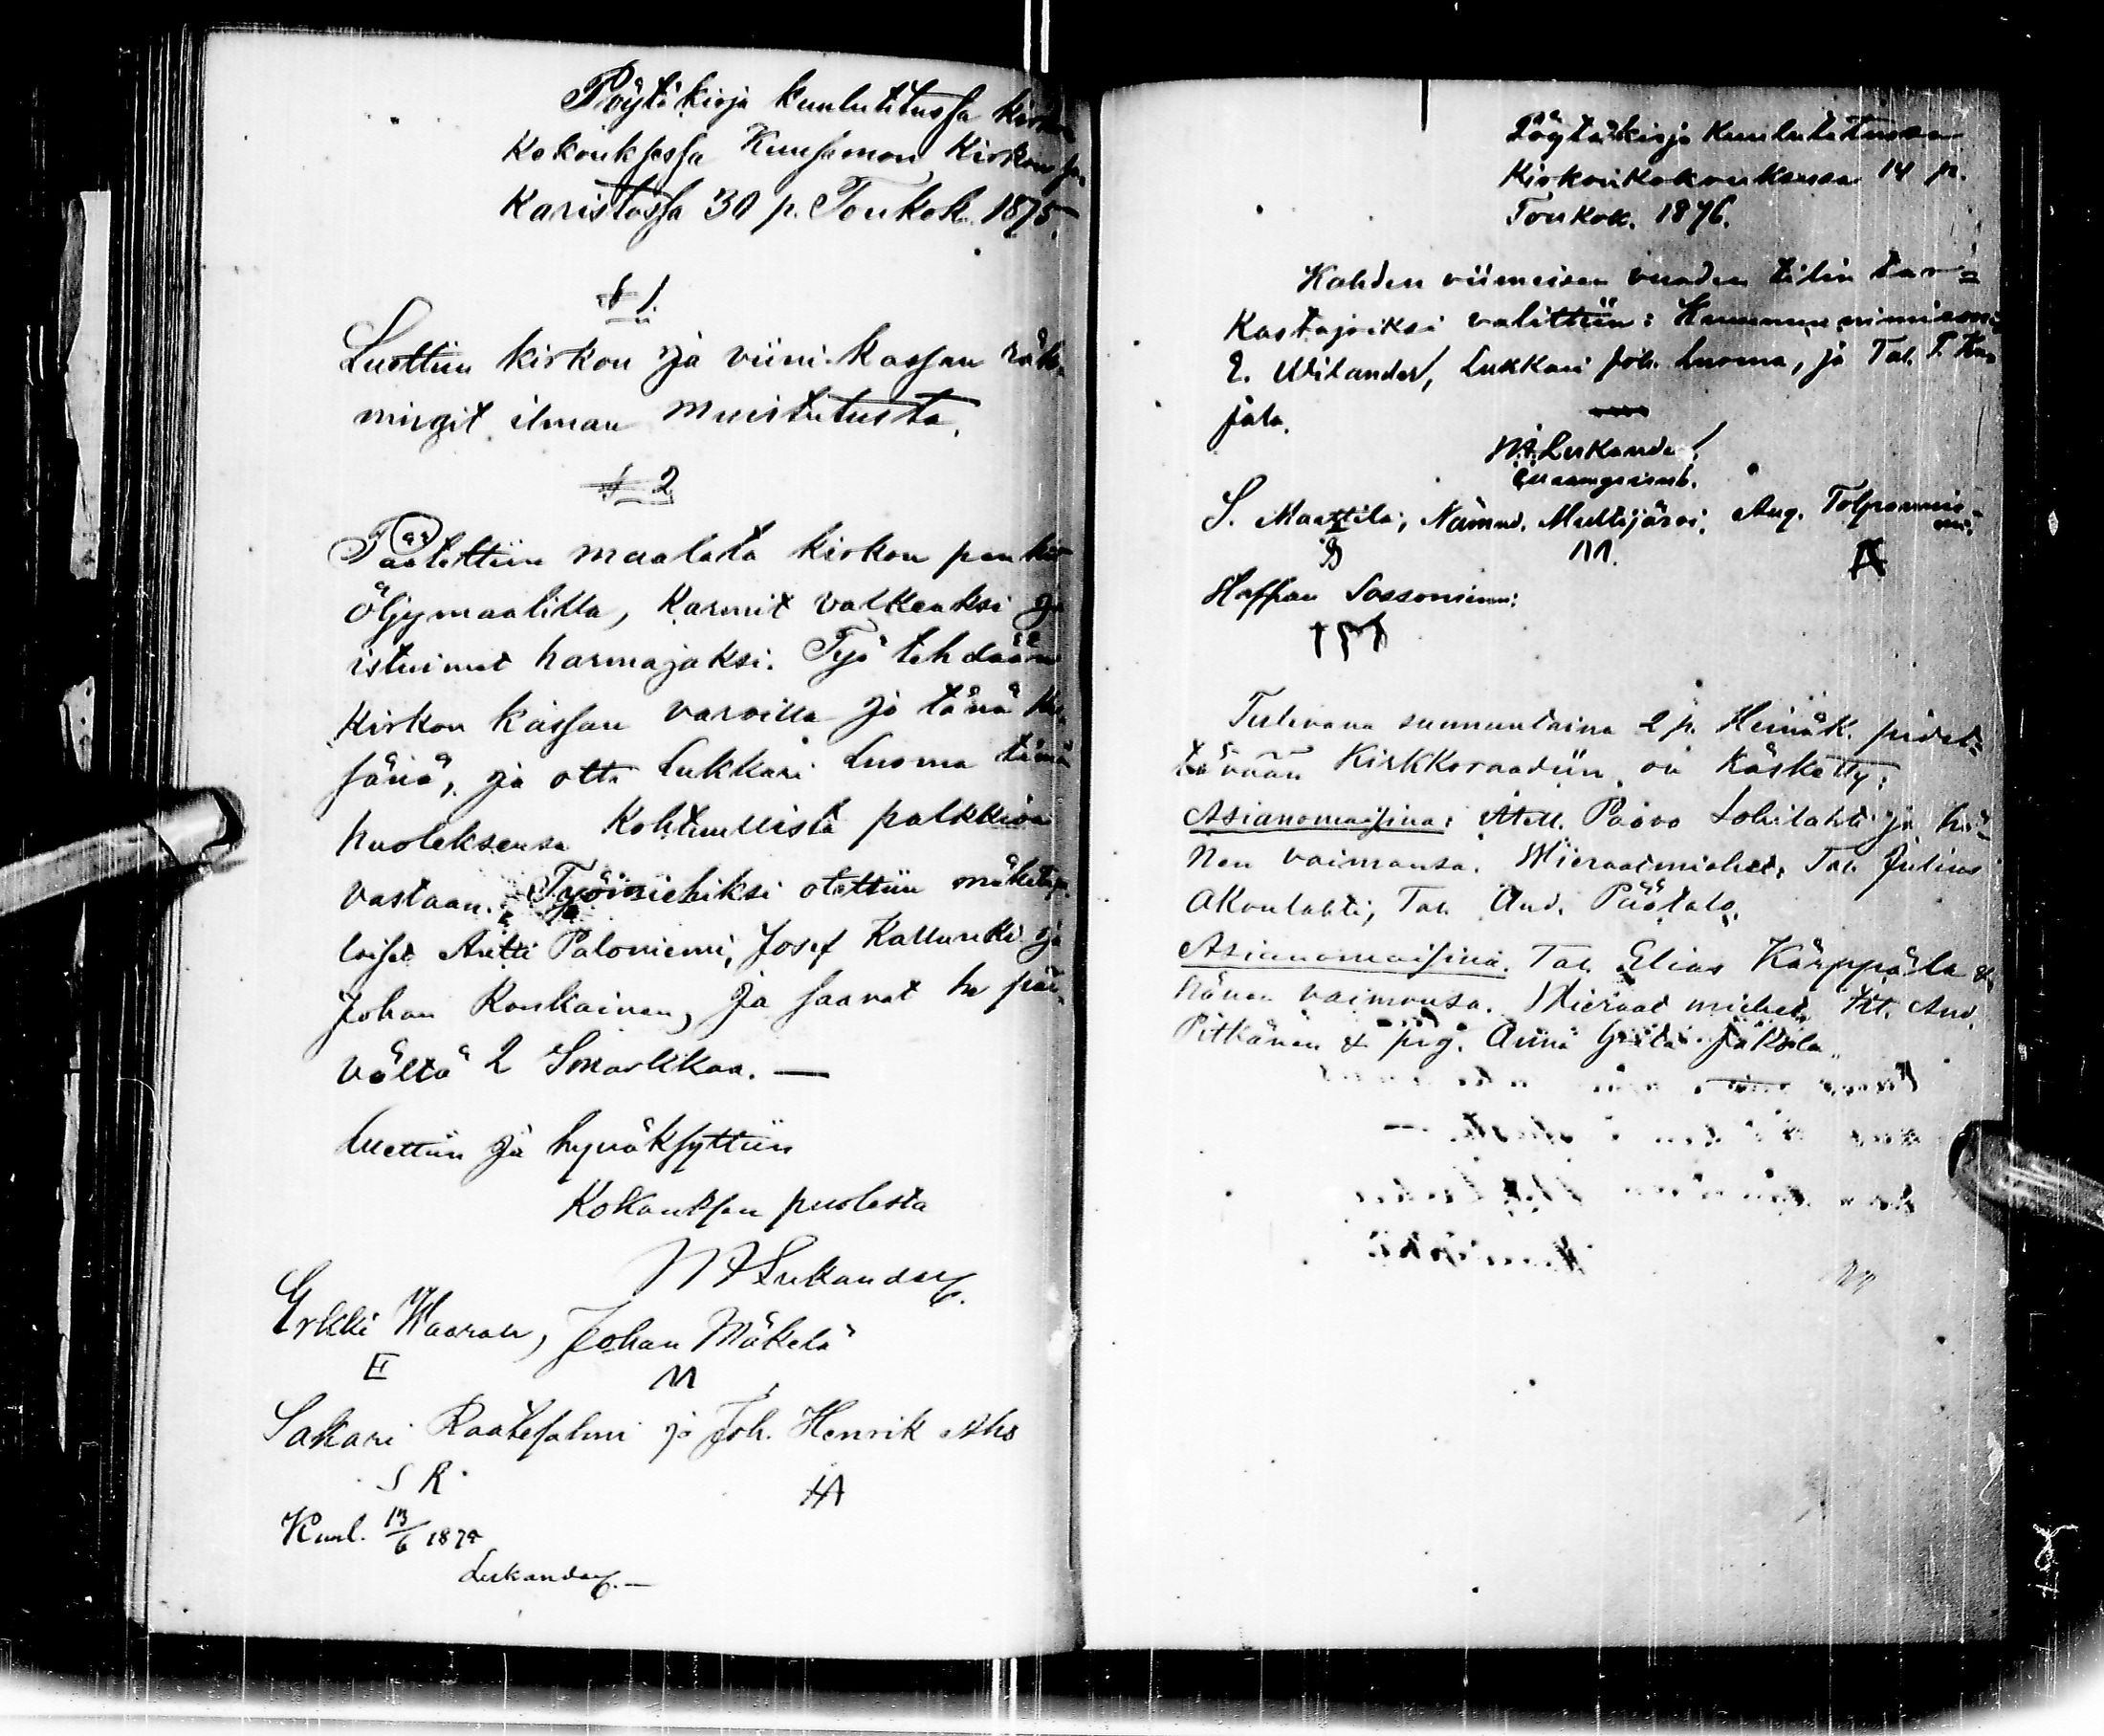 Pöytäkirja kuulutetussa kirkon
Kokouksessa Kuusamon Kirkon sa
karistossa 30 p. Toukok. 1875.
§ 1
Luettiin kirkon ja viini-kassan räk-
ningit ilman muistutusta.
§ 2
Päätettiin maalata kirkon penkit
Öljymaalilla, Karmit valkeaksi ja
istuimet harmajaksi. Työ tehdään
Kirkon kassan varoilla jo tänä ke-
sänä, ja otti Lukkari Luoma tämän
huoleksensa Kohtuullista palkkiota
vastaan. Työmiehiksi otettiin mäkitupa-
laiset Antti Paloniemi, Josef Kallunki ja
Johan Koukainen, ja saavat he päi-
vältä 2 Smarkkaa. —
Luettiin ja hyväksyttiin
Kokouksen puolesta
W A Lukander
Erkki Waaran, Johan Mäkelä
E M
Sakari Raatesalmi ja Joh. Henrik Aho
S R HA
Kuul. 13/6 1875
Lukander. —
Pöytäkirja Kuulutetussa
Kirkonkokouksessa 14 p.
Toukok. 1876.
Kahden viimeisen vuoden tilin tar-
kastajoiksi valittiin: Kruunun nimismies
E. Wilander, Lukkari Joh. Luoma, ja Tal. T. Ka
jala.
W.A. Lukander
S. Määttilä, Nämnd. Multijärvi, Aug. Tolpannie-
mi.
M. A
Staffan Sossoniemi:
Tulevana sunnuntaina 2 p. Heinäk. pidet-
tävään Kirkkoraadiin on käsketty:
Asianomaisina: Paavo Lohilahti ja hä-
nen vaimonsa. Wieraatmiehet: Tal. Julius
Akonlahti, Tal. And. Päätalo.
Asianomaisina. Tal. Elias Kärppälä &
hänen vaimonsa. Wieraat miehet, And.
Pitkänen & pig. Anna Greta Jäkälä.
187